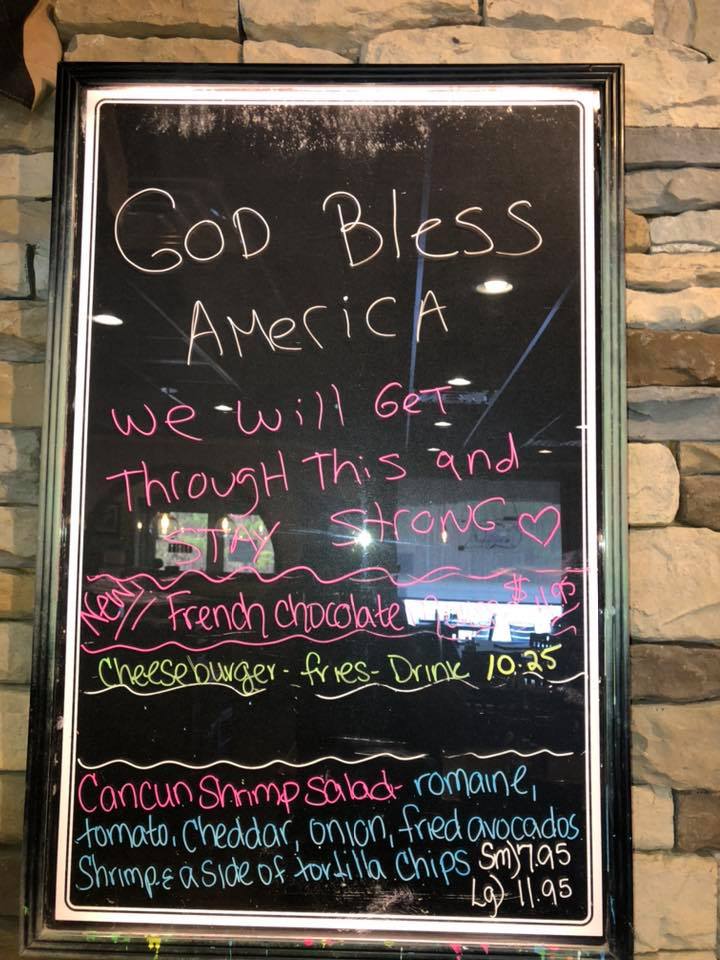 GOD Bless
AMericA
we will GeT
ThrougH This and
STAY StroNG ♡
New!! French chocolate $
Cheeseburger - fries - Drink 10.25
Cancun Shrimp Salad - romaine,
tomato, cheddar, onion, fried avocados
Shrimp & a side of tortilla chips Sm) 7.95
Lg) 11.95